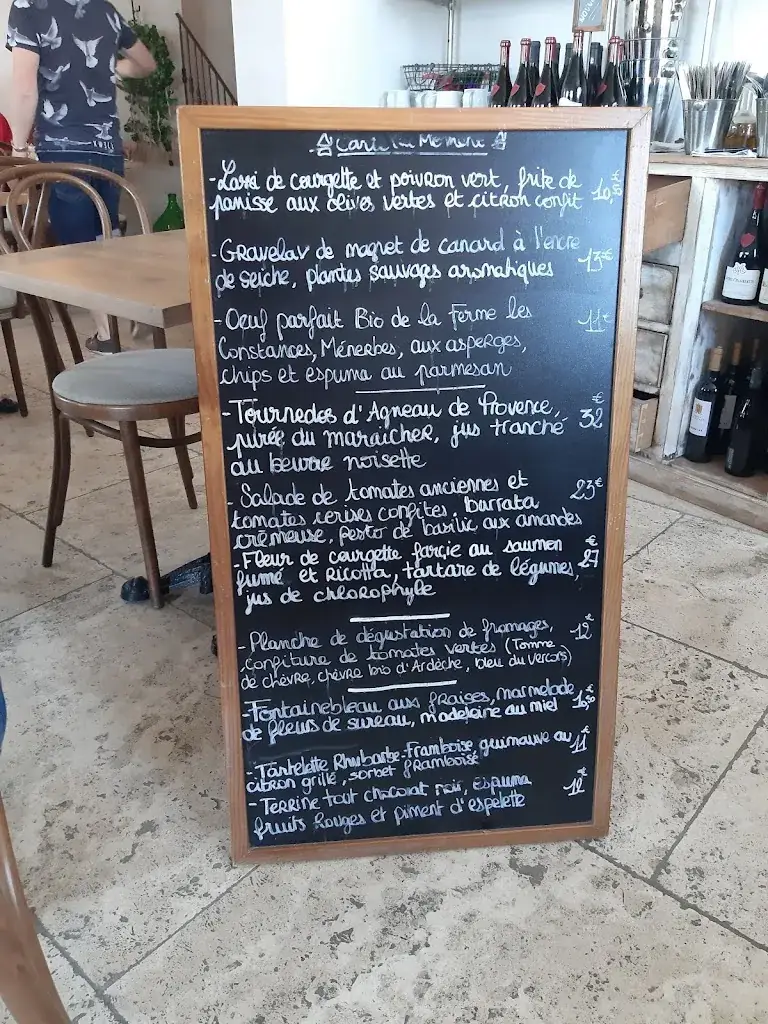 Carte du Moment
- Lassi de courgette et poivron vert, frite de
panisse aux olives vertes et citron confit 10,50
- Gravelax de magret de canard à l'encre
de seiche, plantes sauvages aromatiques 13€
- Oeuf parfait Bio de la Ferme les 11€
Constances, Ménerbes, aux asperges,
chips et espuma au parmesan
- Tournedos d'Agneau de Provence, 32€
purée du maraîcher, jus tranché
au beurre noisette
- Salade de tomates anciennes et 23€
tomates cerises confites, burrata
crémeuse, pesto de basilic aux amandes
- Fleur de courgette farçie au saumon 27€
fumé et Ricotta, tartare de légumes,
jus de chlorophyle
- Planche de dégustation de fromages, 12€
confiture de tomates vertes (Tomme
de chèvre, chèvre bio d'Ardèche, bleu du vercors)
- Fontainebleau aux fraises, marmelade
de fleurs de sureau, madeleine au miel
- Tartelette Rhubarbe-Framboise, guimauve au 11€
citron grillé, sorbet framboise
- Terrine tout chocolat noir, espuma
fruits Rouges et piment d'espelette